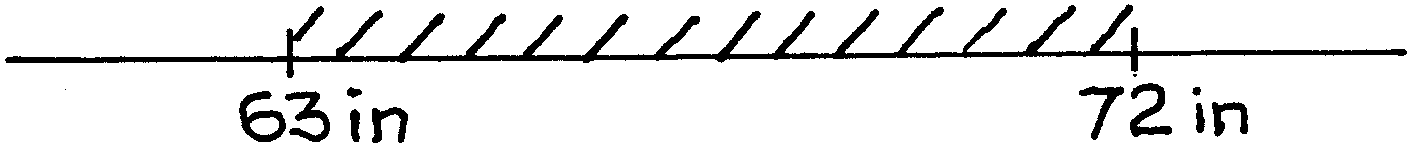 63 in 72 in